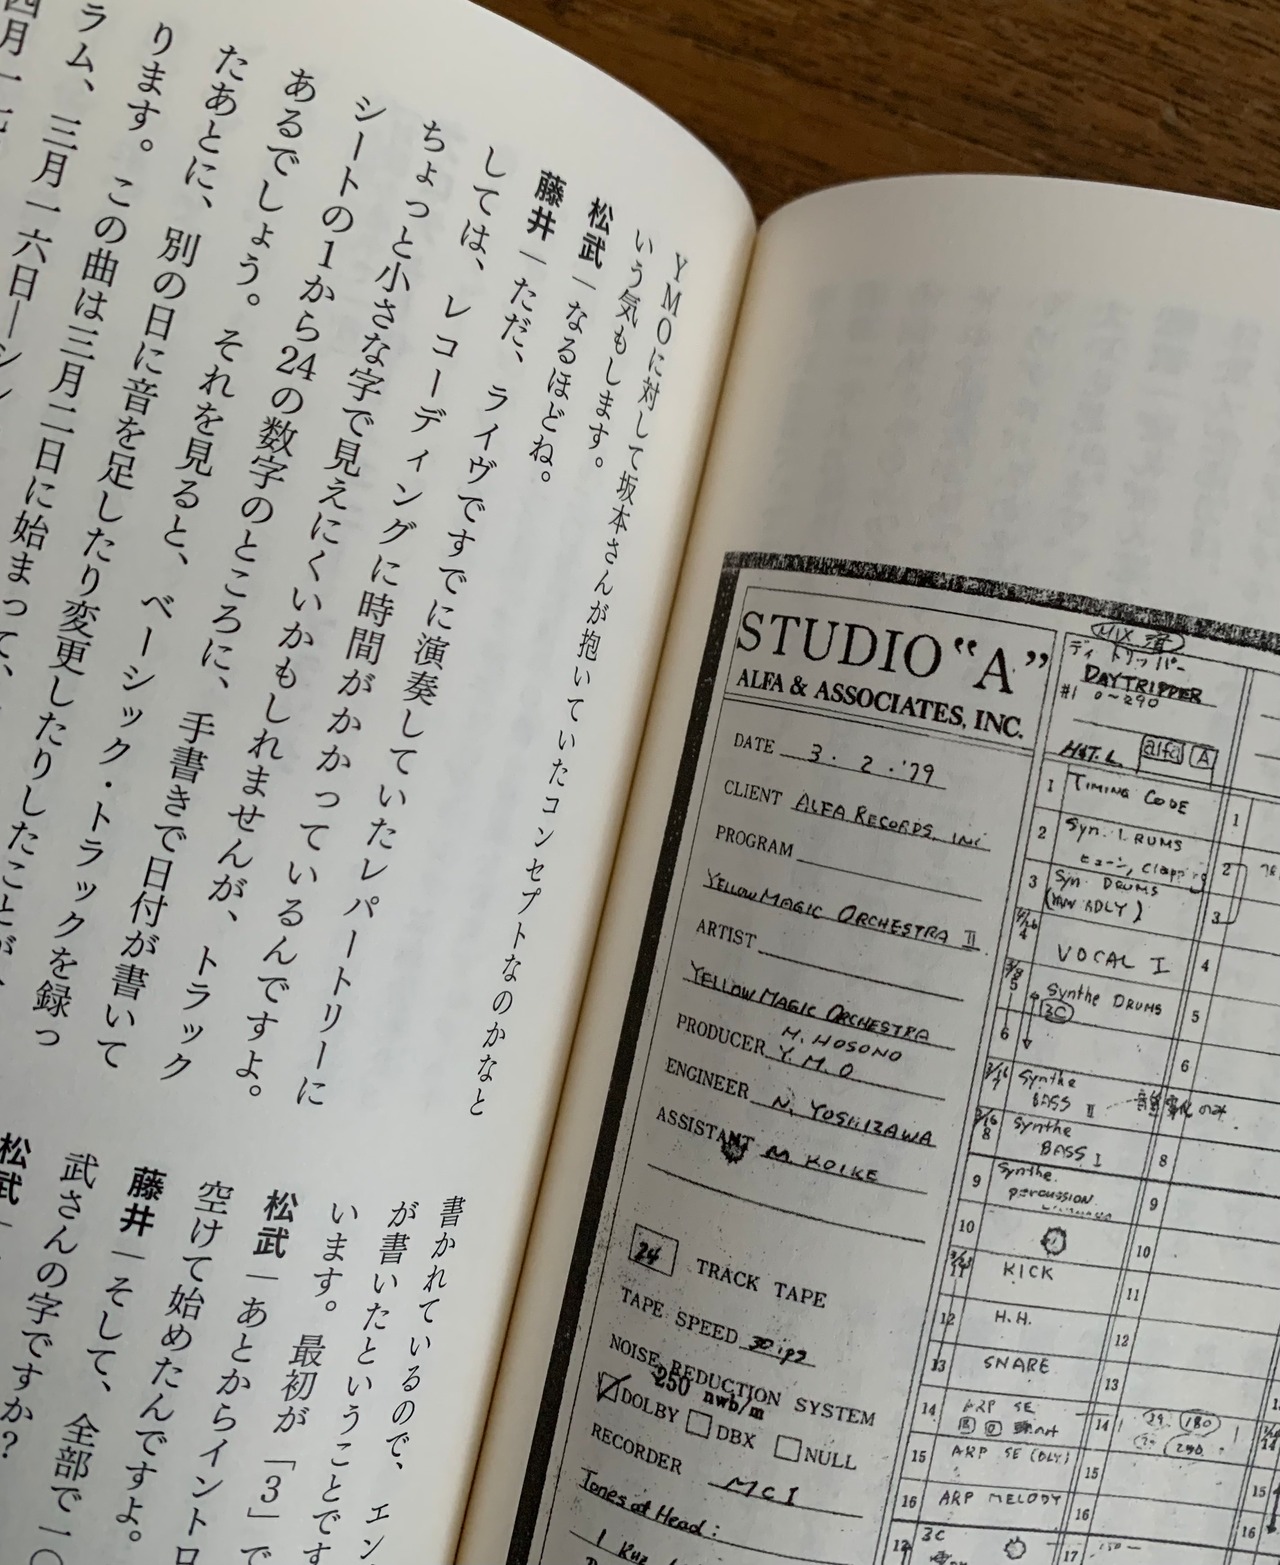 YMOに対して坂本さんが抱いていたコンセプトなのかなと
いう気もします。
松武―なるほどね。
藤井―ただ、ライヴですでに演奏していたレパートリーに
しては、レコーディングに時間がかかっているんですよ。
ちょっと小さな字で見えにくいかもしれませんが、トラック
シートの1から24の数字のところに、手書きで日付が書いて
あるでしょう。それを見ると、ベーシック・トラックを録っ
たあとに、別の日に音を足したり変更したりしたことが、
ります。この曲は三月二日に始まって、
ラム、三月一六日―シン
書かれているので、エン
が書いたということです
います。最初が「3」で
松武―あとからイントロ
空けて始めたんですよ。
藤井―そして、全部で一〇
武さんの字ですか?
松武―
STUDIO "A"
ALFA & ASSOCIATES, INC.
DATE 3. 2. '79
CLIENT ALFA RECORDS, INC
PROGRAM
YELLOW MAGIC ORCHESTRA II
ARTIST
YELLOW MAGIC ORCHESTRA
PRODUCER H. HOSONO
Y. M. O
ENGINEER N. YOSHIZAWA
ASSISTANT M. KOIKE
24 TRACK TAPE
TAPE SPEED 30 ips
NOISE REDUCTION SYSTEM
250 nwb/m
DOLBY DBX NULL
RECORDER MCI
Tones at Head:
MIX 済
デイ トリッパー
DAYTRIPPER
#1 0~290
alfa A
1 TIMING CODE
2 Syn. DRUMS
3 Syn. DRUMS
4 VOCAL I
5 Synthe DRUMS
3C
6
3/16 7 Synthe BASS II
3/16 8 Synthe BASS I
9 Synthe. percussion
10
11 KICK
12 H.H.
13 SNARE
14 ARP SE
15 ARP SE (DLY)
16 ARP MELODY
3C
1
2
3
4
5
6
8
9
10
11
12
13
14
15
16
17